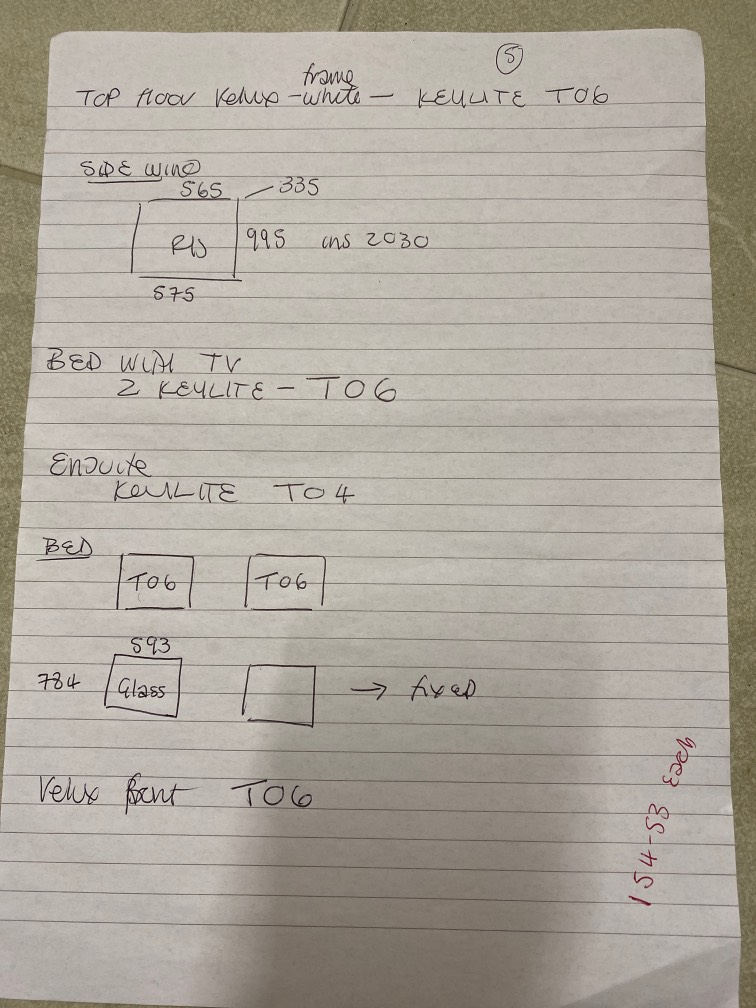 5
frame
TOP floor Velux - white - KEYLITE T06
SIDE WIND
565 335
995 ins 2030
575
BED WITH TV
2 KEYLITE - T06
Ensuite
KEYLITE T04
BED
T06 T06
593
784 Glass → fixed
Velux front T06
154-53 Each